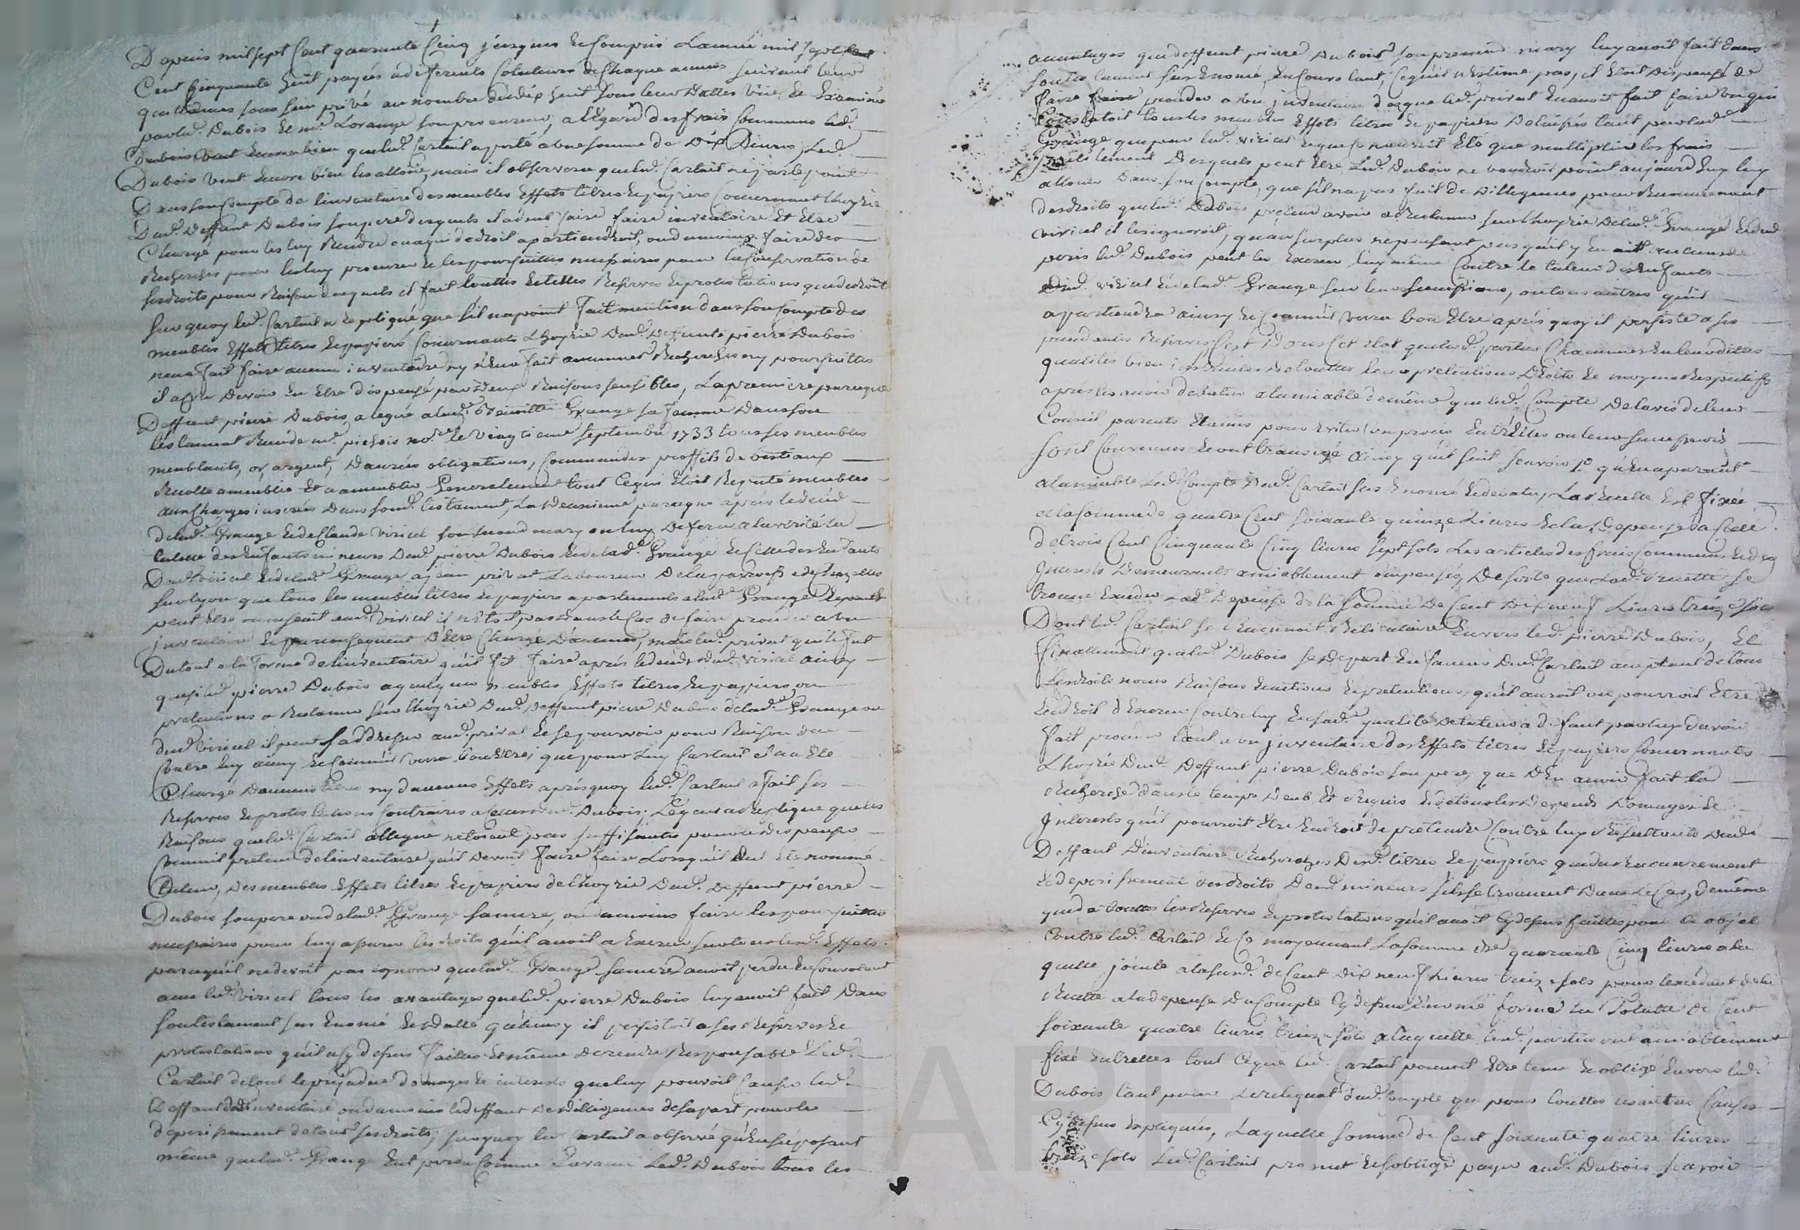 Depuis mil sept Cent quarante Cinq jusques Et Compris L'année mil sept Cent
Cent Cinquante huit payés a diferents Coluteurs de Chaque année suivant leurs
quittances sous sein privé au nombre de dix huit sous leurs Dattes vües Et Examiné
par led. Dubois Et me. Lorange son procureur, a L'Egard des frais Communs led.
Dubois veut Encore bien que led. Cartail a porté a une somme de Dix Livres, Led.
Dubois veut Encore bien les alloüer, mais il observera que led. Cartail ne parle point
Dans son Compte de linventaire des meubles Effets titres Et papiers Concernant lhoyrie
Dud. Deffunt Dubois son pere desquels il devoit faire faire inventaire Et Etre
Chargé pour les luy Rendre ou a qui de droit apartiendroit, ou du moins faire des
Recherches pour les luy procurer Et les poursuittes necessaires pour la Conservation de
ses droits pour Raison desquels il fait touttes Et telles Reserves Et protestations que de droit
sur quoy led. Cartail a repliqué que s'il na point fait mention dans son Compte des
meubles Effets titres Et papiers Concernants L'hoyrie Dud. Deffunt pierre Dubois
n'en a fait faire aucun inventaire ny n'En a fait aucunnes Recherches ny poursuittes
il a Cru Devoir En Etre dispensé par Deux Raisons sensibles, La premiere parceque
Deffunt pierre Dubois, a legué a lad. Grange sa femme Dans son
testament Reçu me. no.re le vingtieme septembre 1733 tous ses meubles
meublants, or argent, Danrées obligations, Commandes proffits de bestiaux
Recolte ameublie Et a ameublir Generalement tout Ce qui Etoit Reputé meubles
aux Charges inserées Dans son d. testament, La Deuxieme parceque après le deces
de lad. Grange Et de Claude viricel son second mary on luy Defera a la verité la
tutelle des Enfants mineurs Dud. pierre Dubois Et de lad. Grange Et Celle des Enfants
Dud. viricel Et de lad. Grange a jean privat Laboureur De la parroisse de Chazelles
sur Lyon que tous les meubles titres Et papiers apartenants a lad. Grange
peut Etre ou censent aud. viricel il n'Etoit pas dans le Cas de faire proceder a un
inventaire Et par Consequent D'Etre Chargé D'aucuns, mais led. privat qui le fut
Du tout a la forme de linventaire qu'il fit faire après le deces dud. viricel ainsy
que si led. pierre Dubois a quelques meubles Effets titres Et papiers, ou
pretentions a Reclamer sur lhoyrie Dud. Deffunt pierre Dubois de lad. Grange ou
dud. viricel il peut s'addresser aud. privat Et se pourvoir pour Raison de ce
Contre luy ainsy Et Comme il verra bon Etre; que pour Luy Cartail il n'a Eté
Chargé D'aucuns titres ny d'aucuns Effets après quoy led. Cartail a fait ses
Reserves Et protestations Contraires a Celles dud. Dubois. Lequel a Repliqué que les
Raisons que led. Cartail allegue ne sont pas suffisantes pour le dispenser
Comme il pretend de linventaire qu'il Devoit faire faire Lorsqu'il Dut Etre nommé
tuteur, Des meubles Effets titres Et papiers de lhoyrie Dud. Deffunt pierre
Dubois son pere ou de lad. Grange sa mere, ou du moins faire les poursuittes
necessaires pour luy assurer les droits qu'il avoit a Exercer sur tous lesd. Effets
parce qu'il ne devoit pas ignorer que lad. Grange sa mere avoit perdu En Convolant
avec led. viricel tous les avantages que led. pierre Dubois luy avoit fait Dans
son testament sus Enoncé Et datté qu'ainsy il persistoit a ses Reserves Et
protestations qu'il a Cy dessus faittes Et même de rendre Responsable Led.
Cartail de tout le prejudice domages Et interests que luy pouvoit Causer led.
Deffaut d'inventaire ou du moins led. deffaut de dilligences de sa part pour le
deperissement de tous ses droits; sur quoy led. Cartail a observé qu'En suposant
même que lad. Grange Eut perdu Comme L'avance Led. Dubois tous les
avantages que deffunt pierre Dubois son premier mary luy avoit fait Dans
son testament sus Enoncé, En Convolant, Ce qu'il n'Estime pas, il Etoit Dispensé de
faire faire proceder a un inventaire des que led. privat En avoit fait faire un qui
Constatoit tous les meubles Effets titres Et papiers Delaissés tant par lad.
Grange que par led. viricel Ce qui se n'auroit Eté que multiplier les frais
inutilement Desquels peut Etre Led. Dubois ne voudroit point aujourd'huy luy
alloüer Dans son Compte, que s'il na pas fait de Dilligences pour Recouvrement
des droits que led. Dubois pretend avoir a Reclamer sur lhoyrie de lad. Grange Et dud.
viricel il les ignoroit, qu'au surplus ne pensant pas qu'il y En ait aucuns de
peris led. Dubois peut les Exercer luy même Contre le tuteur des Enfants
Dud. viricel Et de lad. Grange sur leurs successions, ou tous autres qu'il
apartiendra ainsy Et Comme il verra bon Etre après quoy il persiste a ses
precedentes Reserves C'est Dans Cet Etat que lesd. parties Chacunnes En leurs dittes
qualités bien informées De touttes leurs pretentions Droits Et moyens Respectifs
après les avoir debattu a lamiable de même que led. Compte De l'avis de leur
Conseil parents Et amis pour Eviter un procès Entre Elles ont leurs successeurs
sont Convenües Et ont transigé Ainsy qu'il suit sçavoir p.o qu'En aparurant
a lamiable Led. Compte Dud. Cartail sus Enoncé Et debatu, La Recette Est fixée
a la somme de quatre Cent soixante quinze Livres Et la Depense a Celle
de trois Cent Cinquante Cinq livres sept sols Les articles des frais Communs Et des
interests Demeurants amiablement Compensés, De sorte que Lad. Recette se
trouve Exceder lad. Depense de la somme De Cent Dix neuf Livres treize sols
Dont led. Cartail se Reconnoit Reliquataire Envers led. pierre Dubois, Et
finallement que led. Dubois se Depart En faveur Dud. Cartail acceptant de tous
Les droits noms Raisons Actions Et pretentions, qu'il auroit ou pourroit Etre
En droit d'Exercer Contre luy En sad. qualité De tuteur a defaut par luy d'avoir
fait proceder tant a un inventaire des Effets titres Et papiers Concernants
L'hoyrie Dud. Deffunt pierre Dubois son pere, que d'En avoir fait la
Recherche dans le temps Dub Et Requis Et de tous les Depends Domages Et
Interests qu'il pourroit Etre En droit de pretendre Contre luy Resultants Dud.
Deffaut D'inventaire Recherches Desd. titres Et papiers que du Recouvrement
Et deperissement des droits Desd. mineurs s'ils se trouvent Dans Le Cas; de même
que de touttes les Reserves Et protestations qu'il avoit Cy dessus faittes pour Ce objet
Contre led. Cartail Et Ce moyennant La somme de quarante Cinq livres a la
quelle jointe a la susd. de Cent Dix neuf Livres treize sols pour l'excedant de la
Recette a la depense Du Compte Cy dessus Enoncé forme La Totalité de Cent
soixante quatre livres treize sols a laquelle lesd. parties ont amiablement
fixé Entrelles tout Ce que led. Cartail pouvoit Etre tenu Et obligé Envers led.
Dubois tant pour Le reliquat dud. Compte que pour touttes les autres Causes
Cy dessus Expliquées, Laquelle somme de Cent soixante quatre livres
treize sols Led. Cartail promet Et s'oblige payer aud. Dubois sçavoir
LCHAREYRON